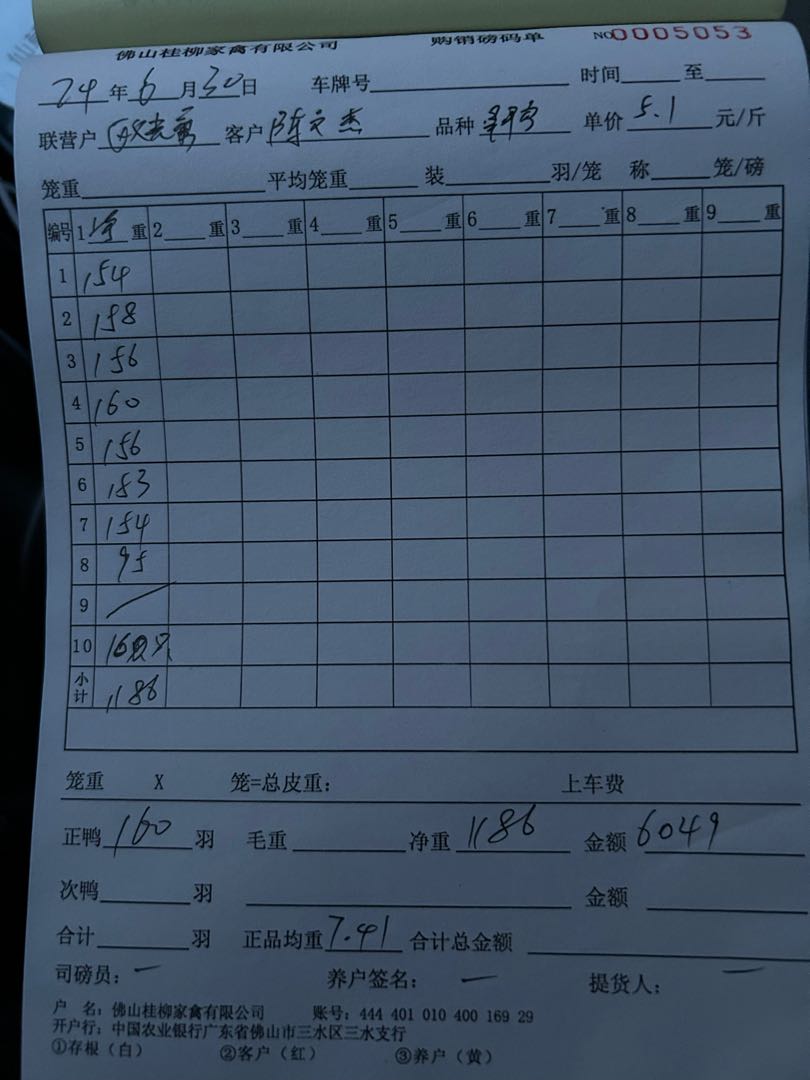 佛山桂柳家禽有限公司 购销磅码单 NO0005053
24年6月30日 车牌号 时间 至
联营户 客户 陈文杰 品种 单价 5.1 元/斤
笼重 平均笼重 装 羽/笼 称 笼/磅
编号 1净重 2 重 3 重 4 重 5 重 6 重 7 重 8 重 9 重
1 154
2 158
3 156
4 160
5 156
6 153
7 154
8 95
9
10 160只
小计 1186
笼重 X 笼=总皮重: 上车费
正鸭 160 羽 毛重 净重 1186 金额 6049
次鸭 羽 金额
合计 羽 正品均重 7.41 合计总金额
司磅员: 一 养户签名: 一 提货人: 一
户 名: 佛山桂柳家禽有限公司 账号: 444 401 010 400 169 29
开户行: 中国农业银行广东省佛山市三水区三水支行
①存根（白） ②客户（红） ③养户（黄）